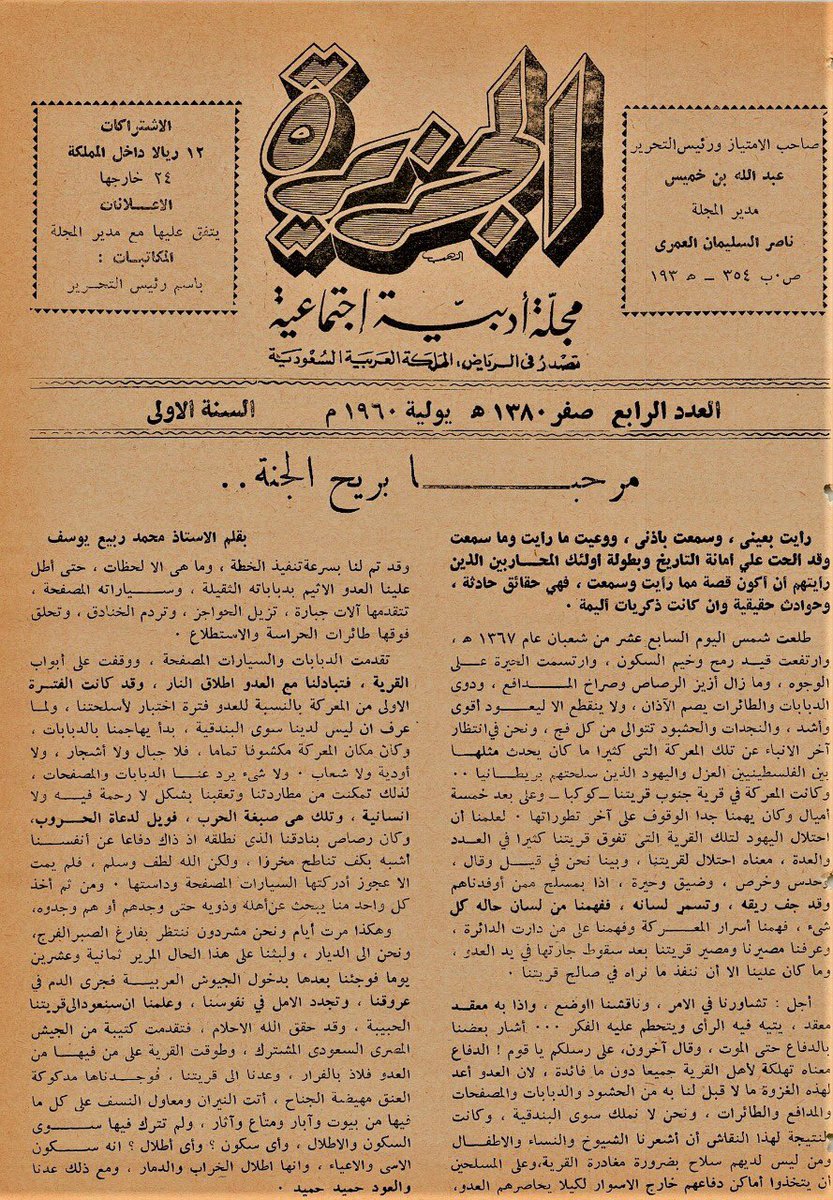 الجزيرة
الذهب
مجلة أدبية إجتماعية
تصدر فى الرياض، المملكة العربية السعودية
صاحب الامتياز ورئيس التحرير
عبد الله بن خميس
مدير المجلة
ناصر السليمان العمرى
ص٠ب ٣٥٤ – ه ١٩٣
الاشتراكات
١٢ ريالا داخل المملكة
٢٤ خارجها
الاعلانات
يتفق عليها مع مدير المجلة
المكاتبات :
باسم رئيس التحرير
العدد الرابع صفر ١٣٨٠ ه يولية ١٩٦٠ م السنة الاولى
مرحبا بريح الجنة ..
رايت بعينى ، وسمعت باذنى ، ووعيت ما رايت وما سمعت
وقد ألحت علي أمانة التاريخ وبطولة اولئك المحاربين الذين
رايتهم أن أكون قصة مما رايت وسمعت ، فهي حقائق حادثة ،
وحوادث حقيقية وان كانت ذكريات أليمة ٠
طلعت شمس اليوم السابع عشر من شعبان عام ١٣٦٧ ه ،
وارتفعت قيد رمح وخيم السكون ، وارتسمت الحيرة على
الوجوه ، وما زال أزيز الرصاص وصراخ المدافع ، ودوى
الدبابات والطائرات يصم الآذان ، ولا ينقطع الا ليعود أقوى
وأشد ، والنجدات والحشود تتوالى من كل فج ، ونحن فى انتظار
آخر الانباء عن تلك المعركة التى كثيرا ما كان يحدث مثلها
بين الفلسطينيين العزل واليهود الذين سلحتهم بريطانيا ٠٠
وكانت المعركة في قرية جنوب قريتنا –كوكبا– وعلى بعد خمسة
أميال وكان يهمنا جدا الوقوف على آخر تطوراتها ٠ لعلمنا ان
احتلال اليهود لتلك القرية التى تفوق قريتنا كثيرا في العدد
والعدة ، معناه احتلال لقريتنا ، وبينا نحن في قيل وقال ،
وحدس وخرص ، وضيق وحيرة ، اذا بمسلح ممن أوفدناهم
وقد جف ريقه ، وتسمر لسانه ، ففهمنا من لسان حاله كل
شىء ، فهمنا أسرار المعركة وفهمنا على من دارت الدائرة ،
وعرفنا مصيرنا ومصير قريتنا بعد سقوط جارتها في يد العدو ،
وما كان علينا الا أن ننفذ ما نراه في صالح قريتنا ٠
أجل : تشاورنا في الامر ، وناقشنا الوضع ، واذا به معقد
معقد ، يتيه فيه الرأى ويتحطم عليه الفكر ٠٠٠ أشار بعضنا
بالدفاع حتى الموت ، وقال آخرون، على رسلكم يا قوم ! الدفاع
معناه تهلكة لأهل القرية جميعا دون ما فائدة ، لان العدو أعد
لهذه الغزوة ما لا قبل لنا به من الحشود والدبابات والمصفحات
والمدافع والطائرات ، ونحن لا نملك سوى البندقية ، وكانت
النتيجة لهذا النقاش أن أشعرنا الشيوخ والنساء والاطفال
ومن ليس لديهم سلاح بضرورة مغادرة القرية،وعلى المسلحين
أن يتخذوا أماكن دفاعهم خارج الاسوار لكيلا يحاصرهم العدو،
بقلم الاستاذ محمد ربيع يوسف
وقد تم لنا بسرعة تنفيذ الخطة ، وما هى الا لحظات ، حتى أطل
علينا العدو الاثيم بدباباته الثقيلة ، وسياراته المصفحة ،
تتقدمها آلات جبارة ، تزيل الحواجز ، وتردم الخنادق ، وتحلق
فوقها طائرات الحراسة والاستطلاع ٠
تقدمت الدبابات والسيارات المصفحة ، ووقفت على أبواب
القرية ، فتبادلنا مع العدو اطلاق النار ، وقد كانت الفترة
الاولى من المعركة بالنسبة للعدو فترة اختبار لأسلحتنا ، ولما
عرف ان ليس لدينا سوى البندقية ، بدأ يهاجمنا بالدبابات ،
وكان مكان المعركة مكشوفا تماما ، فلا جبال ولا أشجار ، ولا
أودية ولا شعاب ٠ ولا شىء يرد عنا الدبابات والمصفحات ،
لذلك تمكنت من مطاردتنا وتعقبنا بشكل لا رحمة فيه ولا
انسانية ، وتلك هى صبغة الحرب ، فويل لدعاة الحروب،
وكان رصاص بنادقنا الذى نطلقه اذ ذاك دفاعا عن أنفسنا
أشبه بكف تناطح مخرزا ، ولكن الله لطف وسلم ، فلم يمت
الا عجوز أدركتها السيارات المصفحة وداستها ٠ ومن ثم أخذ
كل واحد منا يبحث عن أهله وذويه حتى وجدهم أو هم وجدوه،
وهكذا مرت أيام ونحن مشردون ننتظر بفارغ الصبر الفرج،
ونحن الى الديار ، ولبثنا على هذا الحال المرير ثمانية وعشرين
يوما فوجئنا بعدها بدخول الجيوش العربية فجرى الدم في
عروقنا ، وتجدد الامل في نفوسنا ، وعلمنا ان سنعود الى قريتنا
الحبيبة ، وقد حقق الله الاحلام ، فتقدمت كتيبة من الجيش
المصرى السعودى المشترك ، وطوقت القرية على من فيها من
العدو فلاذ بالفرار ، وعدنا الى قريتنا ، فوجدناها مدكوكة
العنق مهيضة الجناح ، أتت النيران ومعاول النسف على كل ما
فيها من بيوت وآبار ومتاع وآثار ، ولم تترك فيها سوى
السكون والاطلال ، وأى سكون ؟ وأى أطلال ؟ انه سكون
الاسى والاعياء ، وانها اطلال الخراب والدمار ، ومع ذلك عدنا
والعود حميد حميد ٠